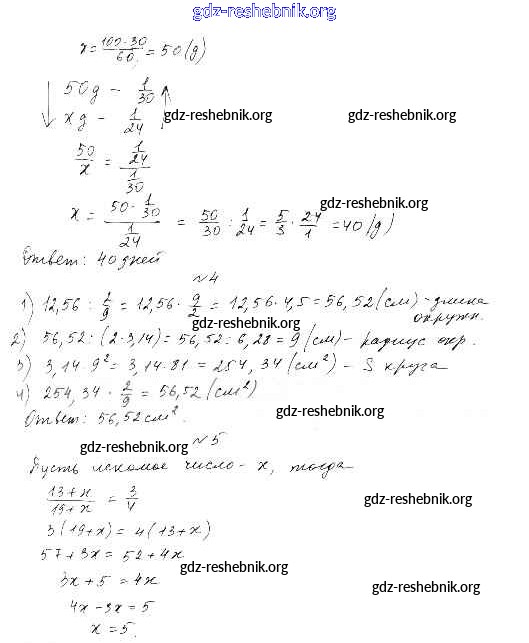 gdz-reshebnik.org
x = 100·30/60 = 50 (g)
50g - 1/30
xg - 1/24
gdz-reshebnik.org
gdz-reshebnik.org
50/x = 1/24 / 1/30
gdz-reshebnik.org
x = 50·1/30 / 1/24 = 50/30 : 1/24 = 5/3 · 24/1 = 40 (g)
Ответ: 40 дней
№4
1) 12,56 : 2/9 = 12,56 · 9/2 = 12,56 · 4,5 = 56,52 (см) - длина
окружн.
gdz-reshebnik.org
2) 56,52 : (2·3,14) = 56,52 : 6,28 = 9 (см) - радиус окр.
3) 3,14·9² = 3,14·81 = 254,34 (см²) - S круга
4) 254,34 · 2/9 = 56,52 (см²)
gdz-reshebnik.org
Ответ: 56,52 см².
№5
gdz-reshebnik.org
Пусть искомое число - x, тогда
13+x/19+x = 3/4
gdz-reshebnik.org
3(19+x) = 4(13+x)
57+3x = 52+4x
gdz-reshebnik.org
3x+5 = 4x
gdz-reshebnik.org
4x-3x = 5
x = 5.